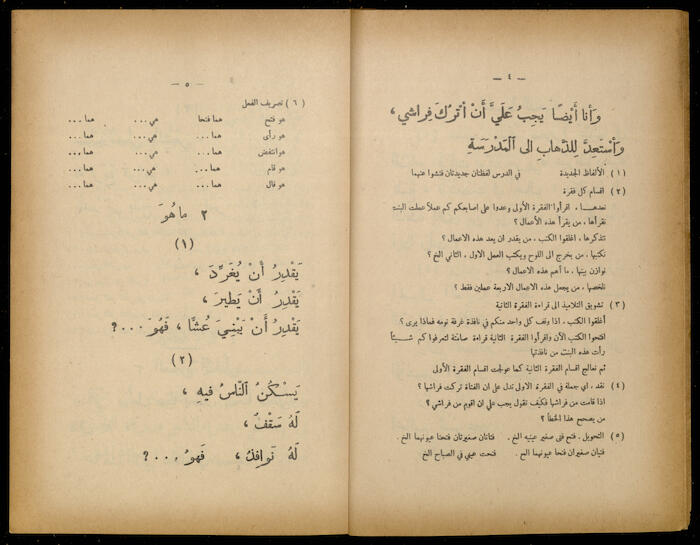 — ٤ —
وَأنا أَيْضًا يَجِبُ عَلَيَّ أَنْ أتْرُكَ فِراشي ،
وَأسْتَعِدَّ لِلذَّهابِ الى اَلْمَدْرَسَةِ
(١) الألفاظ الجديدة في الدرس لفظتان جديدتان فتشوا عنهما
(٢) اقسام كل فقرة
نعدهـا ، اقرأوا الفقرة الأولى وعدوا على اصابعكم كم عملاً عملت البنت
نقرأها ، من يقرأ هذه الأعمال ؟
نتذكرها ، اغلقوا الكتب ، من يقدر ان يعد هذه الاعمال ؟
نكتبها ، من يخرج الى اللوح ويكتب العمل الاول ، الثاني الخ ؟
نوازن بينها ، ما أهم هذه الاعمال ؟
نلخصها ، من يجعل هذه الاعمال الاربعة عملين فقط ؟
(٣) تشويق التلاميذ الى قراءة الفقرة الثانية
أغلقوا الكتب ، اذا وقف كل واحد منكم في نافذة غرفة نومه فماذا يرى ؟
افتحوا الكتب الآن واقرأوا الفقرة الثانية قراءة صامتة لتعرفوا كم شيـئاً
رأت هذه البنت من نافذتها
ثم نعالج اقسام الفقرة الثانية كما عولجت اقسام الفقرة الأولى
(٤) نقد ، اي جملة في الفقرة الاولى تدل على ان الفتاة تركت فراشها ؟
اذا قامت من فراشها فكيف تقول يجب علي ان اقوم من فراشي ؟
من يصحح هذا الخطأ ؟
(٥) التحويل . فتح فتى صغير عينيه الخ . فتاتان صغيرتان فتحتا عيونهما الخ .
فتيان صغيران فتحا عيونهما الخ . فتحت عيني في الصباح الخ
— ٥ —
(٦) تصريف الفعل
هو فتح هما فتحا هي ... هما ...
هو رأى هما ... هي ... هما ...
هو انتفض هما ... هي ... هما ...
هو قام هما ... هي ... هما ...
هو قال هما ... هي ... هما ...
٢ ما هُوَ
(١)
يَقْدِرُ أَنْ يُغَرِّدَ ،
يَقْدِرُ أَنْ يَطيرَ ،
يَقْدِرُ أَنْ يَبْنِيَ عُشًّا ، فَهُوَ ...؟
(٢)
يَسْكُنُ اَلنّاسُ فيهِ ،
لَهُ سَقْفٌ ،
لَهُ نَوافِذُ ، فَهُوَ ...؟